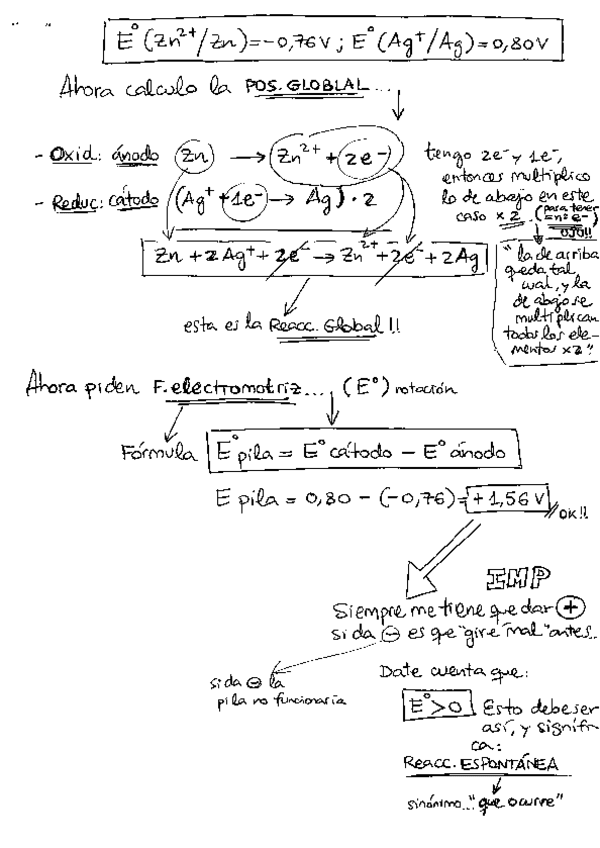 E°(Zn²⁺/Zn)=-0,76V ; E°(Ag⁺/Ag)=0,80V
Ahora calculo la POS. GLOBLAL...
- Oxid: ánodo Zn → Zn²⁺ + 2e⁻
- Reduc: cátodo (Ag⁺ + 1e⁻ → Ag) · 2
tengo 2e⁻ y 1e⁻,
entonces multiplico
lo de abajo en este
caso x 2. (para tener
= nº e⁻)
OJO!!
Zn + 2Ag⁺ + 2e⁻ → Zn²⁺ + 2e⁻ + 2Ag
"la de arriba
queda tal
cual, y la
de abajo se
multiplican
todos los ele-
mentos x2"
esta es la Reacc. Global !!
Ahora piden F. electromotriz... (E°) notación
Fórmula E°pila = E°cátodo - E°ánodo
E pila = 0,80 - (-0,76) = +1,56 V
OK!!
IMP
Siempre me tiene que dar ⊕
si da ⊖ es que "giré mal" antes..
si da ⊖ la
pila no funcionaría
Date cuenta que:
E°>0 Esto debe ser
así, y signifi-
ca:
REACC. ESPONTÁNEA
sinónimo.. "que ocurre"